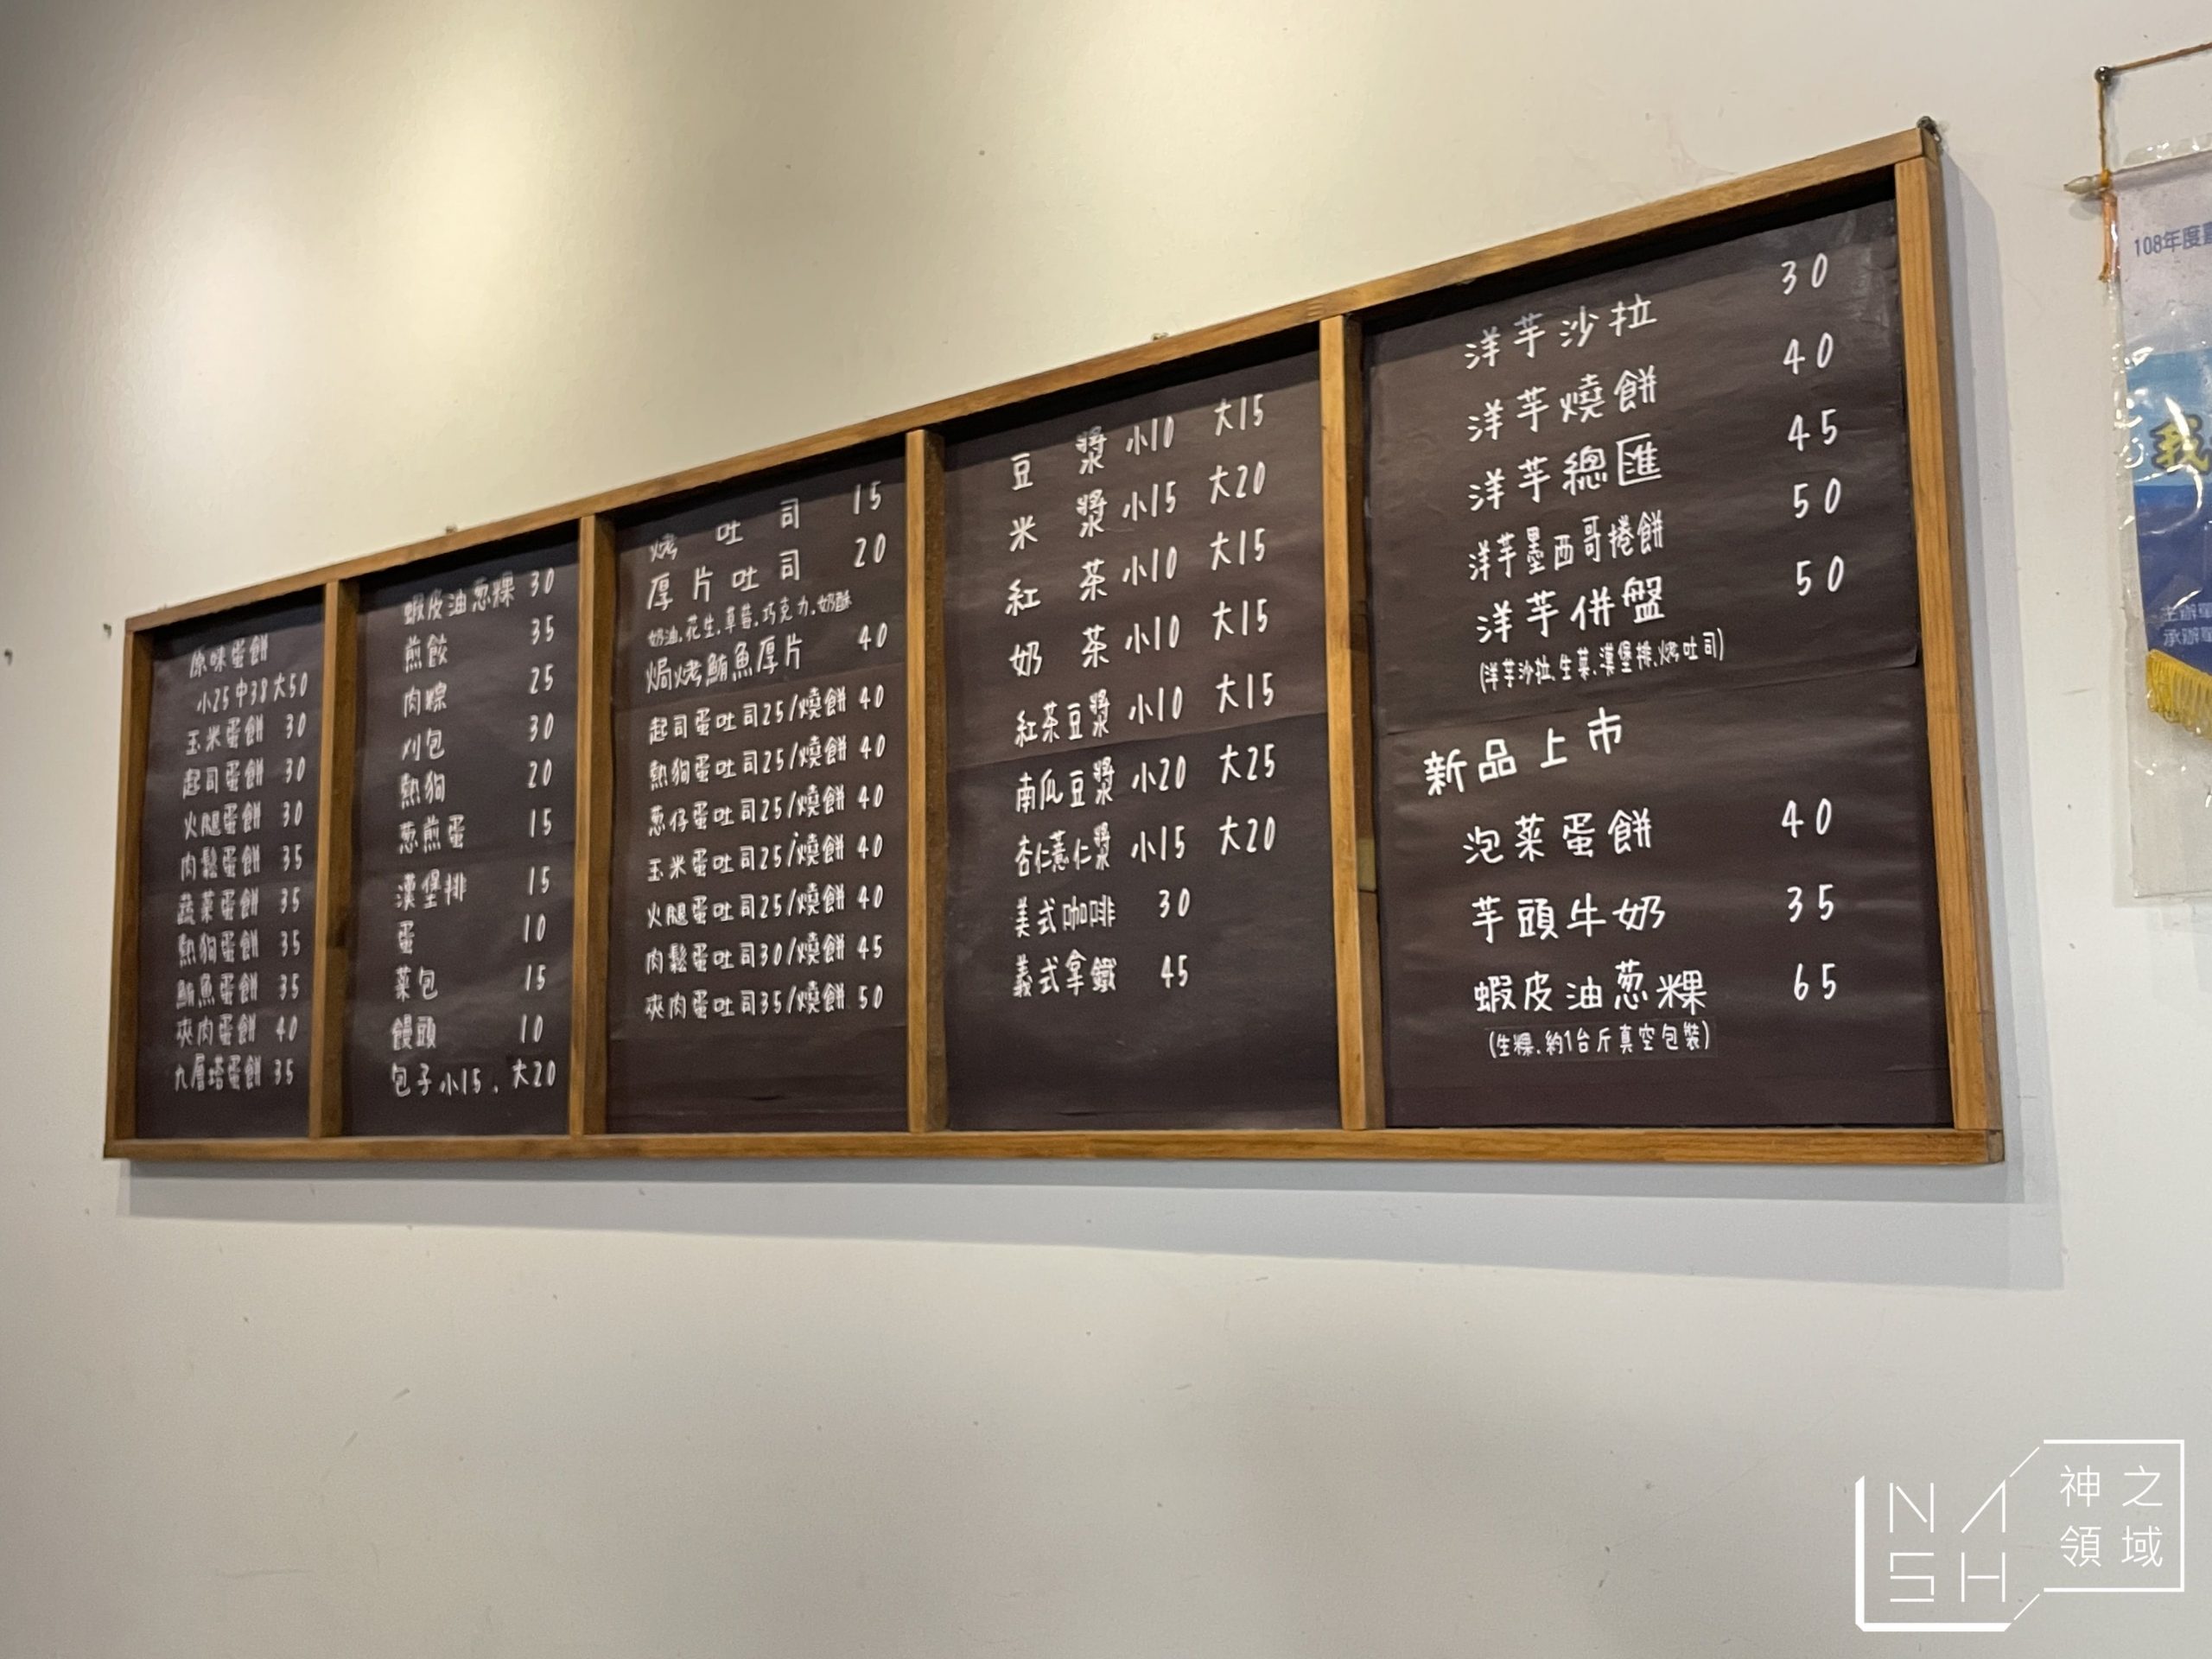 原味蛋餅
小25中38大50
玉米蛋餅 30
起司蛋餅 30
火腿蛋餅 30
肉鬆蛋餅 35
蔬菜蛋餅 35
熱狗蛋餅 35
鮪魚蛋餅 35
夾肉蛋餅 40
九層塔蛋餅 35
蝦皮油葱粿 30
煎餃 35
肉粽 25
刈包 30
熱狗 20
葱煎蛋 15
漢堡排 15
蛋 10
菜包 15
饅頭 10
包子小15、大20
烤吐司 15
厚片吐司 20
奶油、花生、草莓、巧克力、奶酥
焗烤鮪魚厚片 40
起司蛋吐司25/燒餅 40
熱狗蛋吐司25/燒餅 40
葱仔蛋吐司25/燒餅 40
玉米蛋吐司25/燒餅 40
火腿蛋吐司25/燒餅 40
肉鬆蛋吐司30/燒餅 45
夾肉蛋吐司35/燒餅 50
豆漿 小10 大15
米漿 小15 大20
紅茶 小10 大15
奶茶 小10 大15
紅茶豆漿 小10 大15
南瓜豆漿 小20 大25
杏仁薏仁漿 小15 大20
美式咖啡 30
義式拿鐵 45
洋芋沙拉 30
洋芋燒餅 40
洋芋總匯 45
洋芋墨西哥捲餅 50
洋芋併盤 50
(洋芋沙拉、生菜、漢堡排、烤吐司)
新品上市
泡菜蛋餅 40
芋頭牛奶 35
蝦皮油葱粿 65
(生粿、約1台斤真空包裝)
108年度
我
主辦單
承辦單
NASH
神之
領域